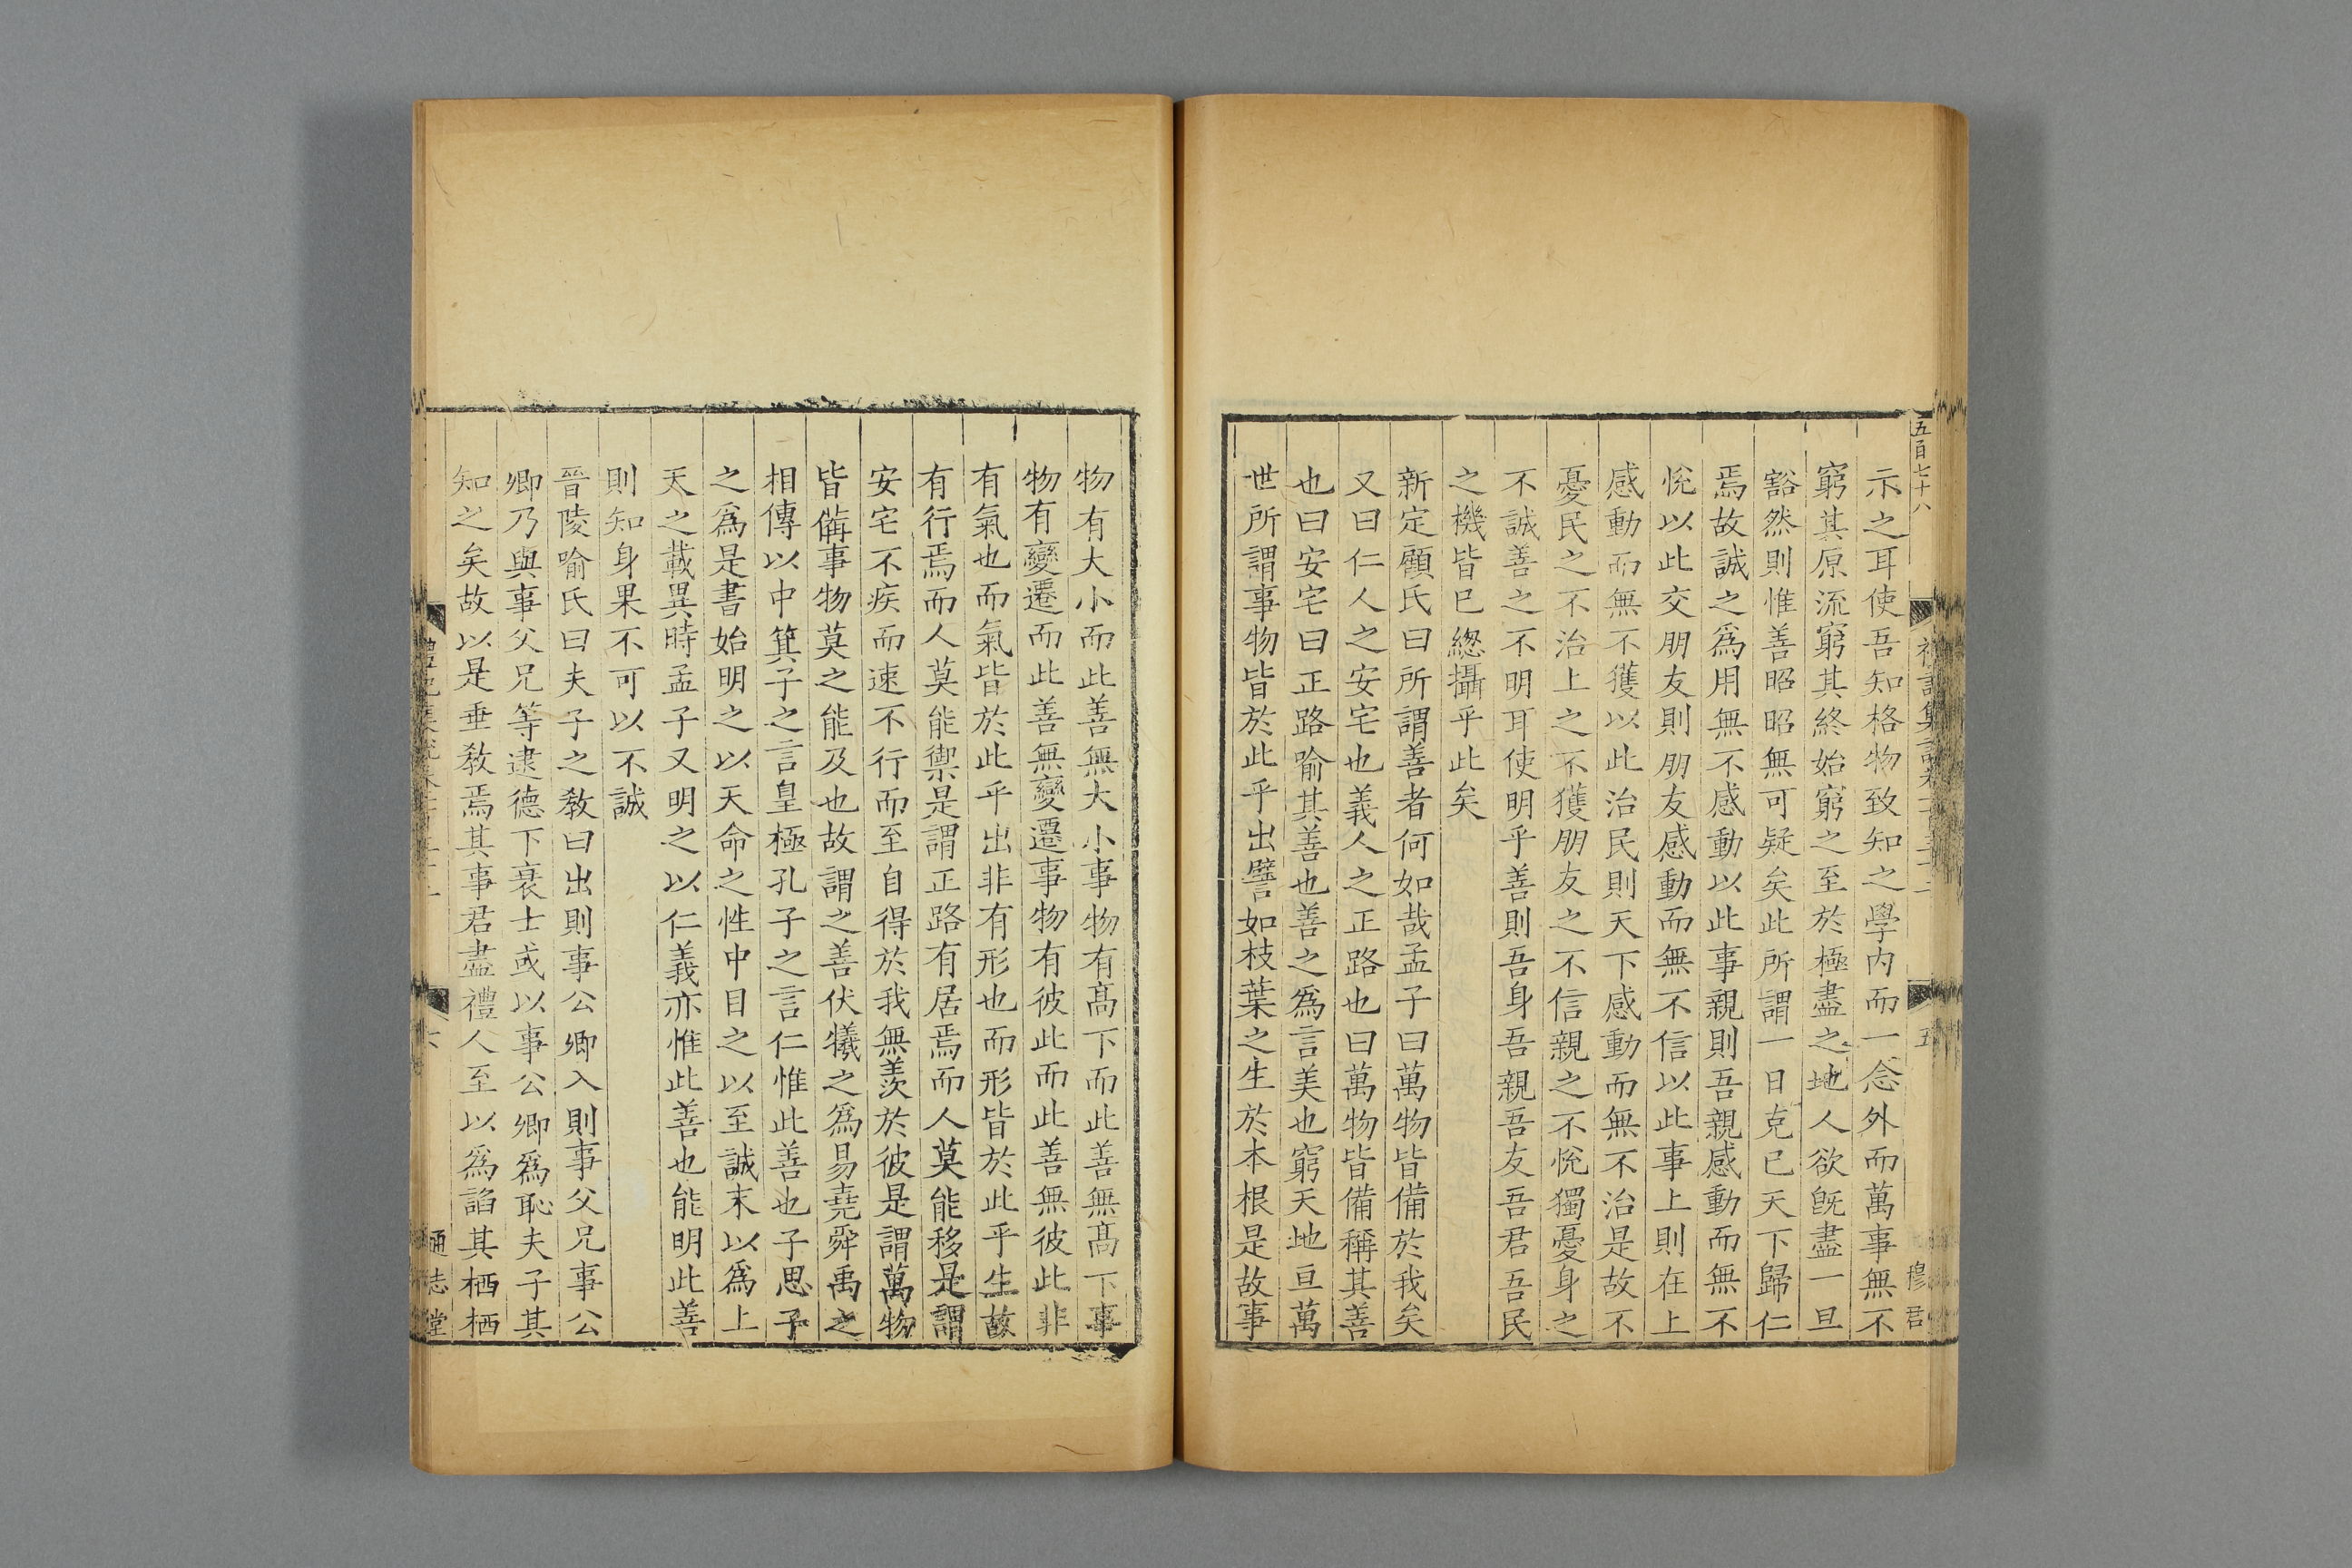 五百七十八
五
穆君
示之耳使吾知格物致知之學内而一念外而萬事無不
窮其原流窮其終始窮之至於極盡之地人欲旣盡一旦
豁然則惟善昭昭無可疑矣此所謂一日克已天下歸仁
焉故誠之爲用無不感動以此事親則吾親感動而無不
悅以此交朋友則朋友感動而無不信以此事上則在上
感動而無不獲以此治民則天下感動而無不治是故不
憂民之不治上之不獲朋友之不信親之不悅獨憂身之
不誠善之不明耳使明乎善則吾身吾親吾友吾君吾民
之機皆已緫攝乎此矣
新定顧氏曰所謂善者何如哉孟子曰萬物皆備於我矣
又曰仁人之安宅也義人之正路也曰萬物皆備稱其善
也曰安宅曰正路喻其善也善之爲言美也窮天地亘萬
世所謂事物皆於此乎出譬如枝葉之生於本根是故事
物有大小而此善無大小事物有髙下而此善無髙下事
物有變遷而此善無變遷事物有彼此而此善無彼此非
有氣也而氣皆於此乎出非有形也而形皆於此乎生故
有行焉而人莫能禦是謂正路有居焉而人莫能移是謂
安宅不疾而速不行而至自得於我無羨於彼是謂萬物
皆備事物莫之能及也故謂之善伏犧之爲易堯舜禹之
相傳以中箕子之言皇極孔子之言仁惟此善也子思子
之爲是書始明之以天命之性中目之以至誠末以爲上
天之載異時孟子又明之以仁義亦惟此善也能明此善
則知身果不可以不誠
晉陵喻氏曰夫子之敎曰出則事公卿入則事父兄事公
卿乃與事父兄等逮德下衰士或以事公卿爲恥夫子其
知之矣故以是垂敎焉其事君盡禮人至以爲諂其栖栖
六
通志堂